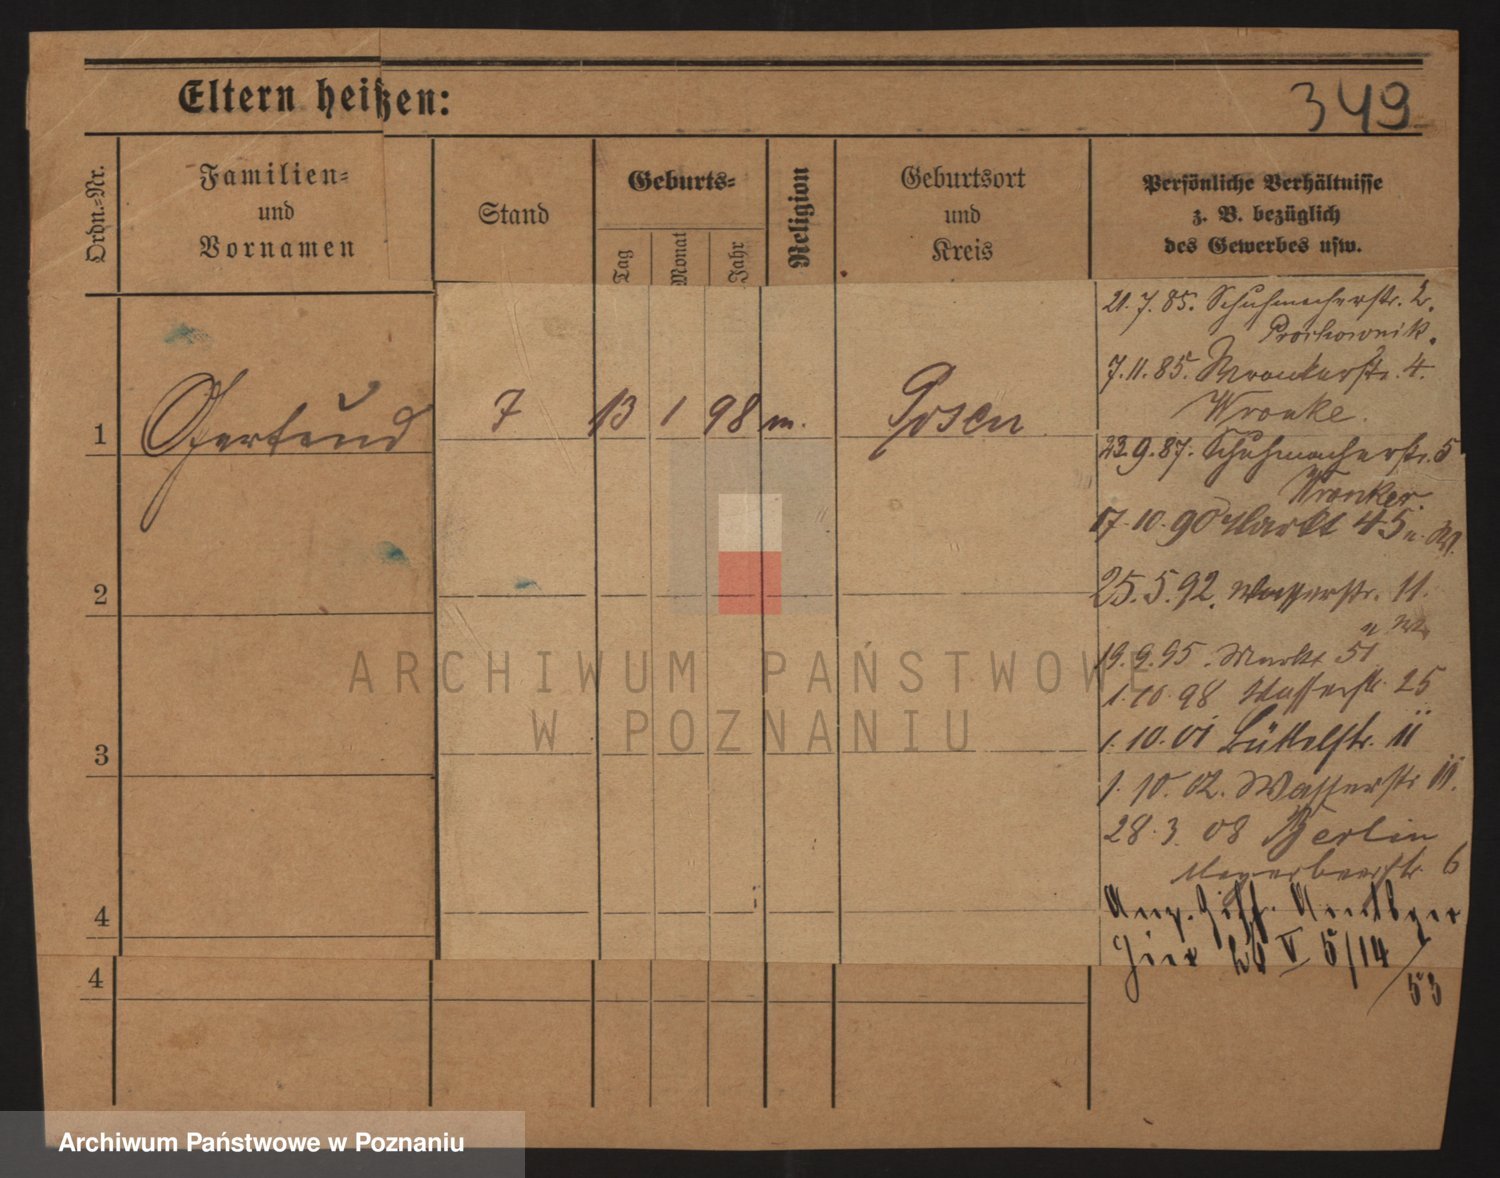 Eltern heißen:
349
Ordn.=Nr.
Familien=
und
Vornamen
Stand
Geburts=
Tag
Monat
Jahr
Religion
Geburtsort
und
Kreis
Persönliche Verhältnisse
z. B. bezüglich
des Gewerbes usw.
1 Gertrud 7 13 1 98 m. Posen
2
3
4
4
21.7.85. Schuhmacherstr. 2.
Prochownik.
7.11.85. Wronkerstr. 4.
Wronke.
23.9.87. Schuhmacherstr. 5
Wronker.
17.10.90 Markt 45
25.5.92. Wasserstr. 11.
19.9.95. Markt 51
1.10.98 Wasserstr. 25
1.10.01 Büttelstr. 11
1.10.02. Wasserstr. 11.
28.3.08 Berlin
Meyerbeerstr. 6
V 5/14
53
ARCHIWUM PAŃSTWOWE
W POZNANIU
Archiwum Państwowe w Poznaniu